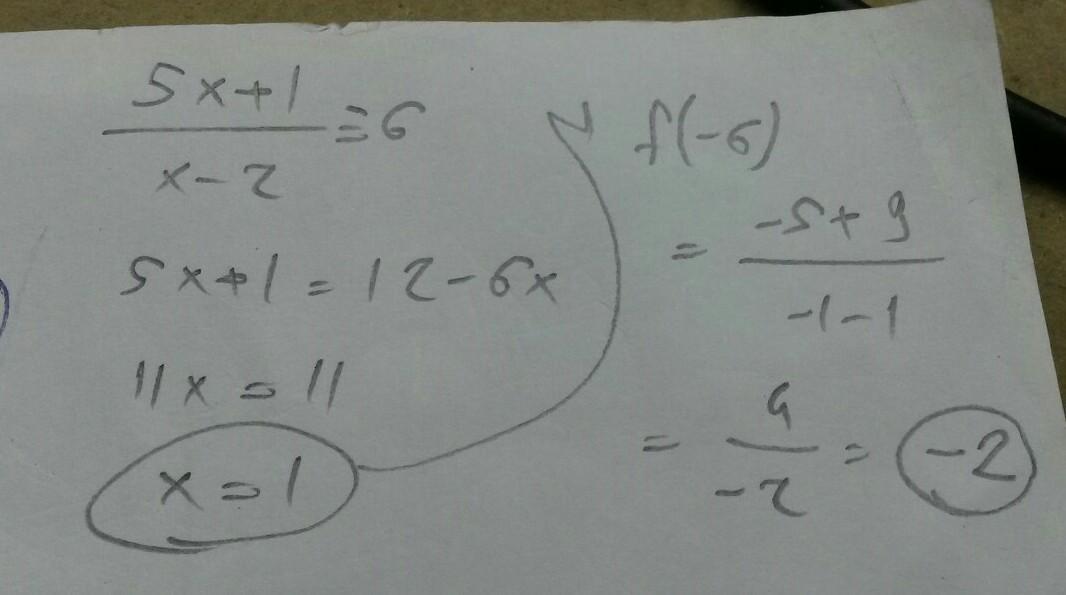 5x+1
x-2
=-6
5x+1=12-6x
11x=11
x=1
f(-6)
=
-5+9
-1-1
=
4
-2
= -2